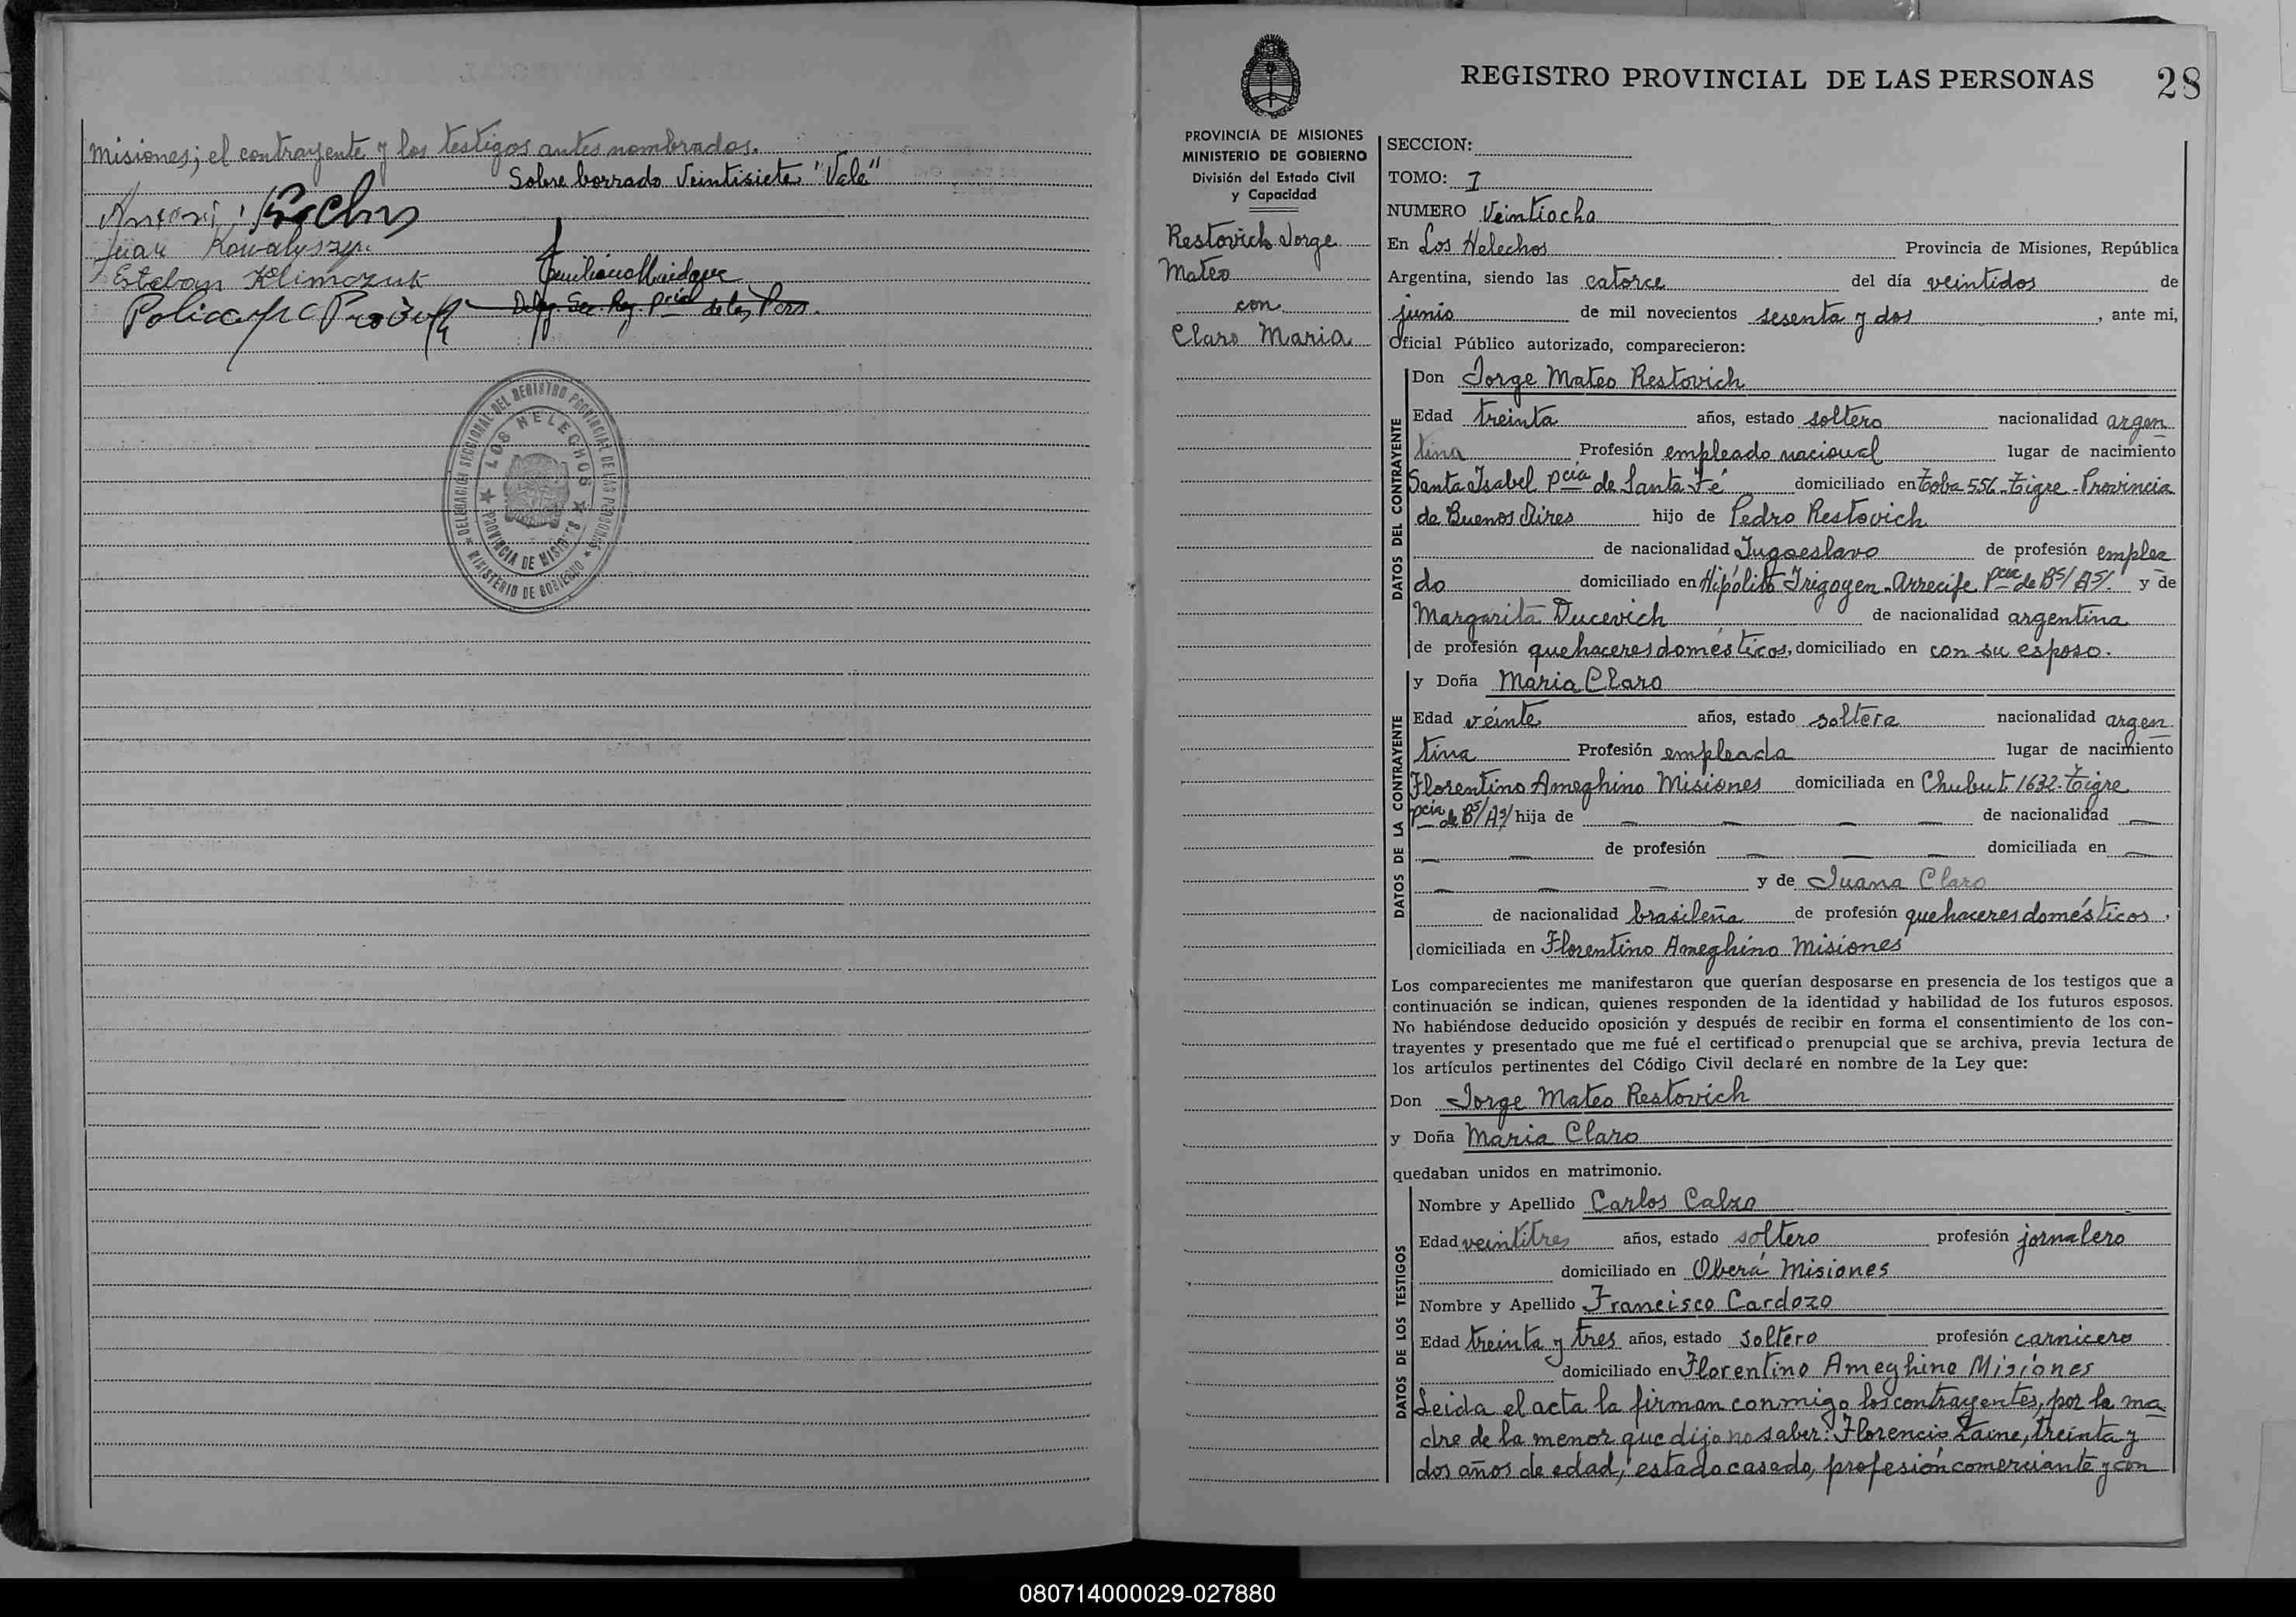 misiones; el contrayente y los testigos antes nombrados.
Sobre borrado Veintisiete "Vale"
Juan Kowalyszyn
Esteban Klimczuk
Deleg. Sec. Reg. Pcial de las Pers.
DELEGACIÓN SECCIONAL DEL REGISTRO PROVINCIAL DE LAS PERSONAS
LOS HELECHOS
PROVINCIA DE MISIONES
MINISTERIO DE GOBIERNO
REGISTRO PROVINCIAL DE LAS PERSONAS 28
PROVINCIA DE MISIONES
MINISTERIO DE GOBIERNO
División del Estado Civil
y Capacidad
Restovich Jorge
Mateo
con
Claro Maria
SECCION:
TOMO: I
NUMERO Veintiocho
En Los Helechos Provincia de Misiones, República
Argentina, siendo las catorce del día veintidos de
junio de mil novecientos sesenta y dos, ante mi,
Oficial Público autorizado, comparecieron:
DATOS DEL CONTRAYENTE
Don Jorge Mateo Restovich
Edad treinta años, estado soltero nacionalidad argen
tina Profesión empleado nacional lugar de nacimiento
Santa Isabel pcia de Santa Fé domiciliado en Toba 556 Tigre - Provincia
de Buenos Aires hijo de Pedro Restovich
de nacionalidad Jugoeslavo de profesión emplea
do domiciliado en Hipólito Irigoyen - Arrecife Pcia de Bs/As/. y de
Margarita Ducevich de nacionalidad argentina
de profesión quehaceres domésticos, domiciliado en con su esposo.
DATOS DE LA CONTRAYENTE
y Doña Maria Claro
Edad veinte años, estado soltera nacionalidad argen
tina Profesión empleada lugar de nacimiento
Florentino Ameghino Misiones domiciliada en Chubut 1632 - Tigre
pcia de Bs/As/ hija de — — — — de nacionalidad —
— — de profesión — — — domiciliada en —
— — — y de Juana Claro
de nacionalidad brasileña de profesión quehaceres domésticos,
domiciliada en Florentino Ameghino Misiones
Los comparecientes me manifestaron que querían desposarse en presencia de los testigos que a
continuación se indican, quienes responden de la identidad y habilidad de los futuros esposos.
No habiéndose deducido oposición y después de recibir en forma el consentimiento de los con-
trayentes y presentado que me fué el certificado prenupcial que se archiva, previa lectura de
los artículos pertinentes del Código Civil declaré en nombre de la Ley que:
Don Jorge Mateo Restovich
y Doña Maria Claro
quedaban unidos en matrimonio.
DATOS DE LOS TESTIGOS
Nombre y Apellido Carlos Calzo
Edad veintitres años, estado soltero profesión jornalero
domiciliado en Oberá Misiones
Nombre y Apellido Francisco Cardozo
Edad treinta y tres años, estado soltero profesión carnicero
domiciliado en Florentino Ameghino Misiones
Leida el acta la firman conmigo los contrayentes, por la ma
dre de la menor que dijo no saber: Florencio Zaine, treinta y
dos años de edad, estado casado, profesión comerciante y con
080714000029-027880